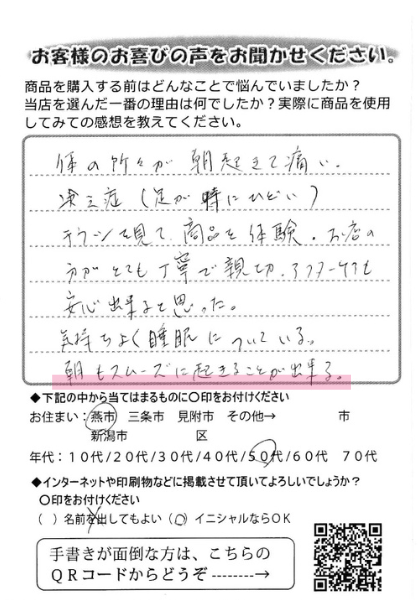 お客様のお喜びの声をお聞かせください。
商品を購入する前はどんなことで悩んでいましたか？
当店を選んだ一番の理由は何でしたか？実際に商品を使用
してみての感想を教えてください。
体の節々が朝起きて痛い。
冷え症（足が時にひどい）
チラシを見て、商品を体験。お店の
方がとても丁寧で親切。
安心出来ると思った。
気持ちよく睡眠についている。
朝もスムーズに起きることが出来る。
◆下記の中から当てはまるものに〇印をお付けください
お住まい：燕市 三条市 見附市 その他→ 市
新潟市 区
年代：１０代/２０代/３０代/４０代/５０代/６０代 ７０代
◆インターネットや印刷物などに掲載させて頂いてよろしいでしょうか？
〇印をお付けください
（ ）名前を出してもよい（〇）イニシャルならＯＫ
手書きが面倒な方は、こちらの
ＱＲコードからどうぞ --------→